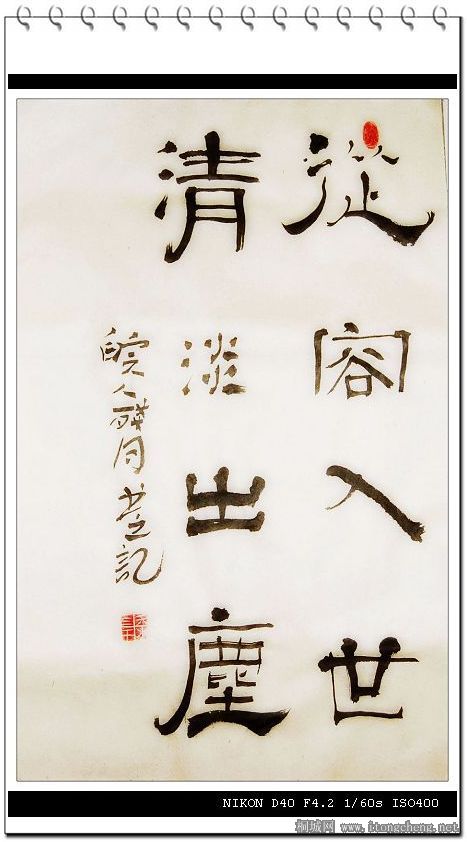 從容入世
清淡出塵
皖人殘月书记
NIKON D40 F4.2 1/60s ISO400
桐城网 www.itongcheng.net